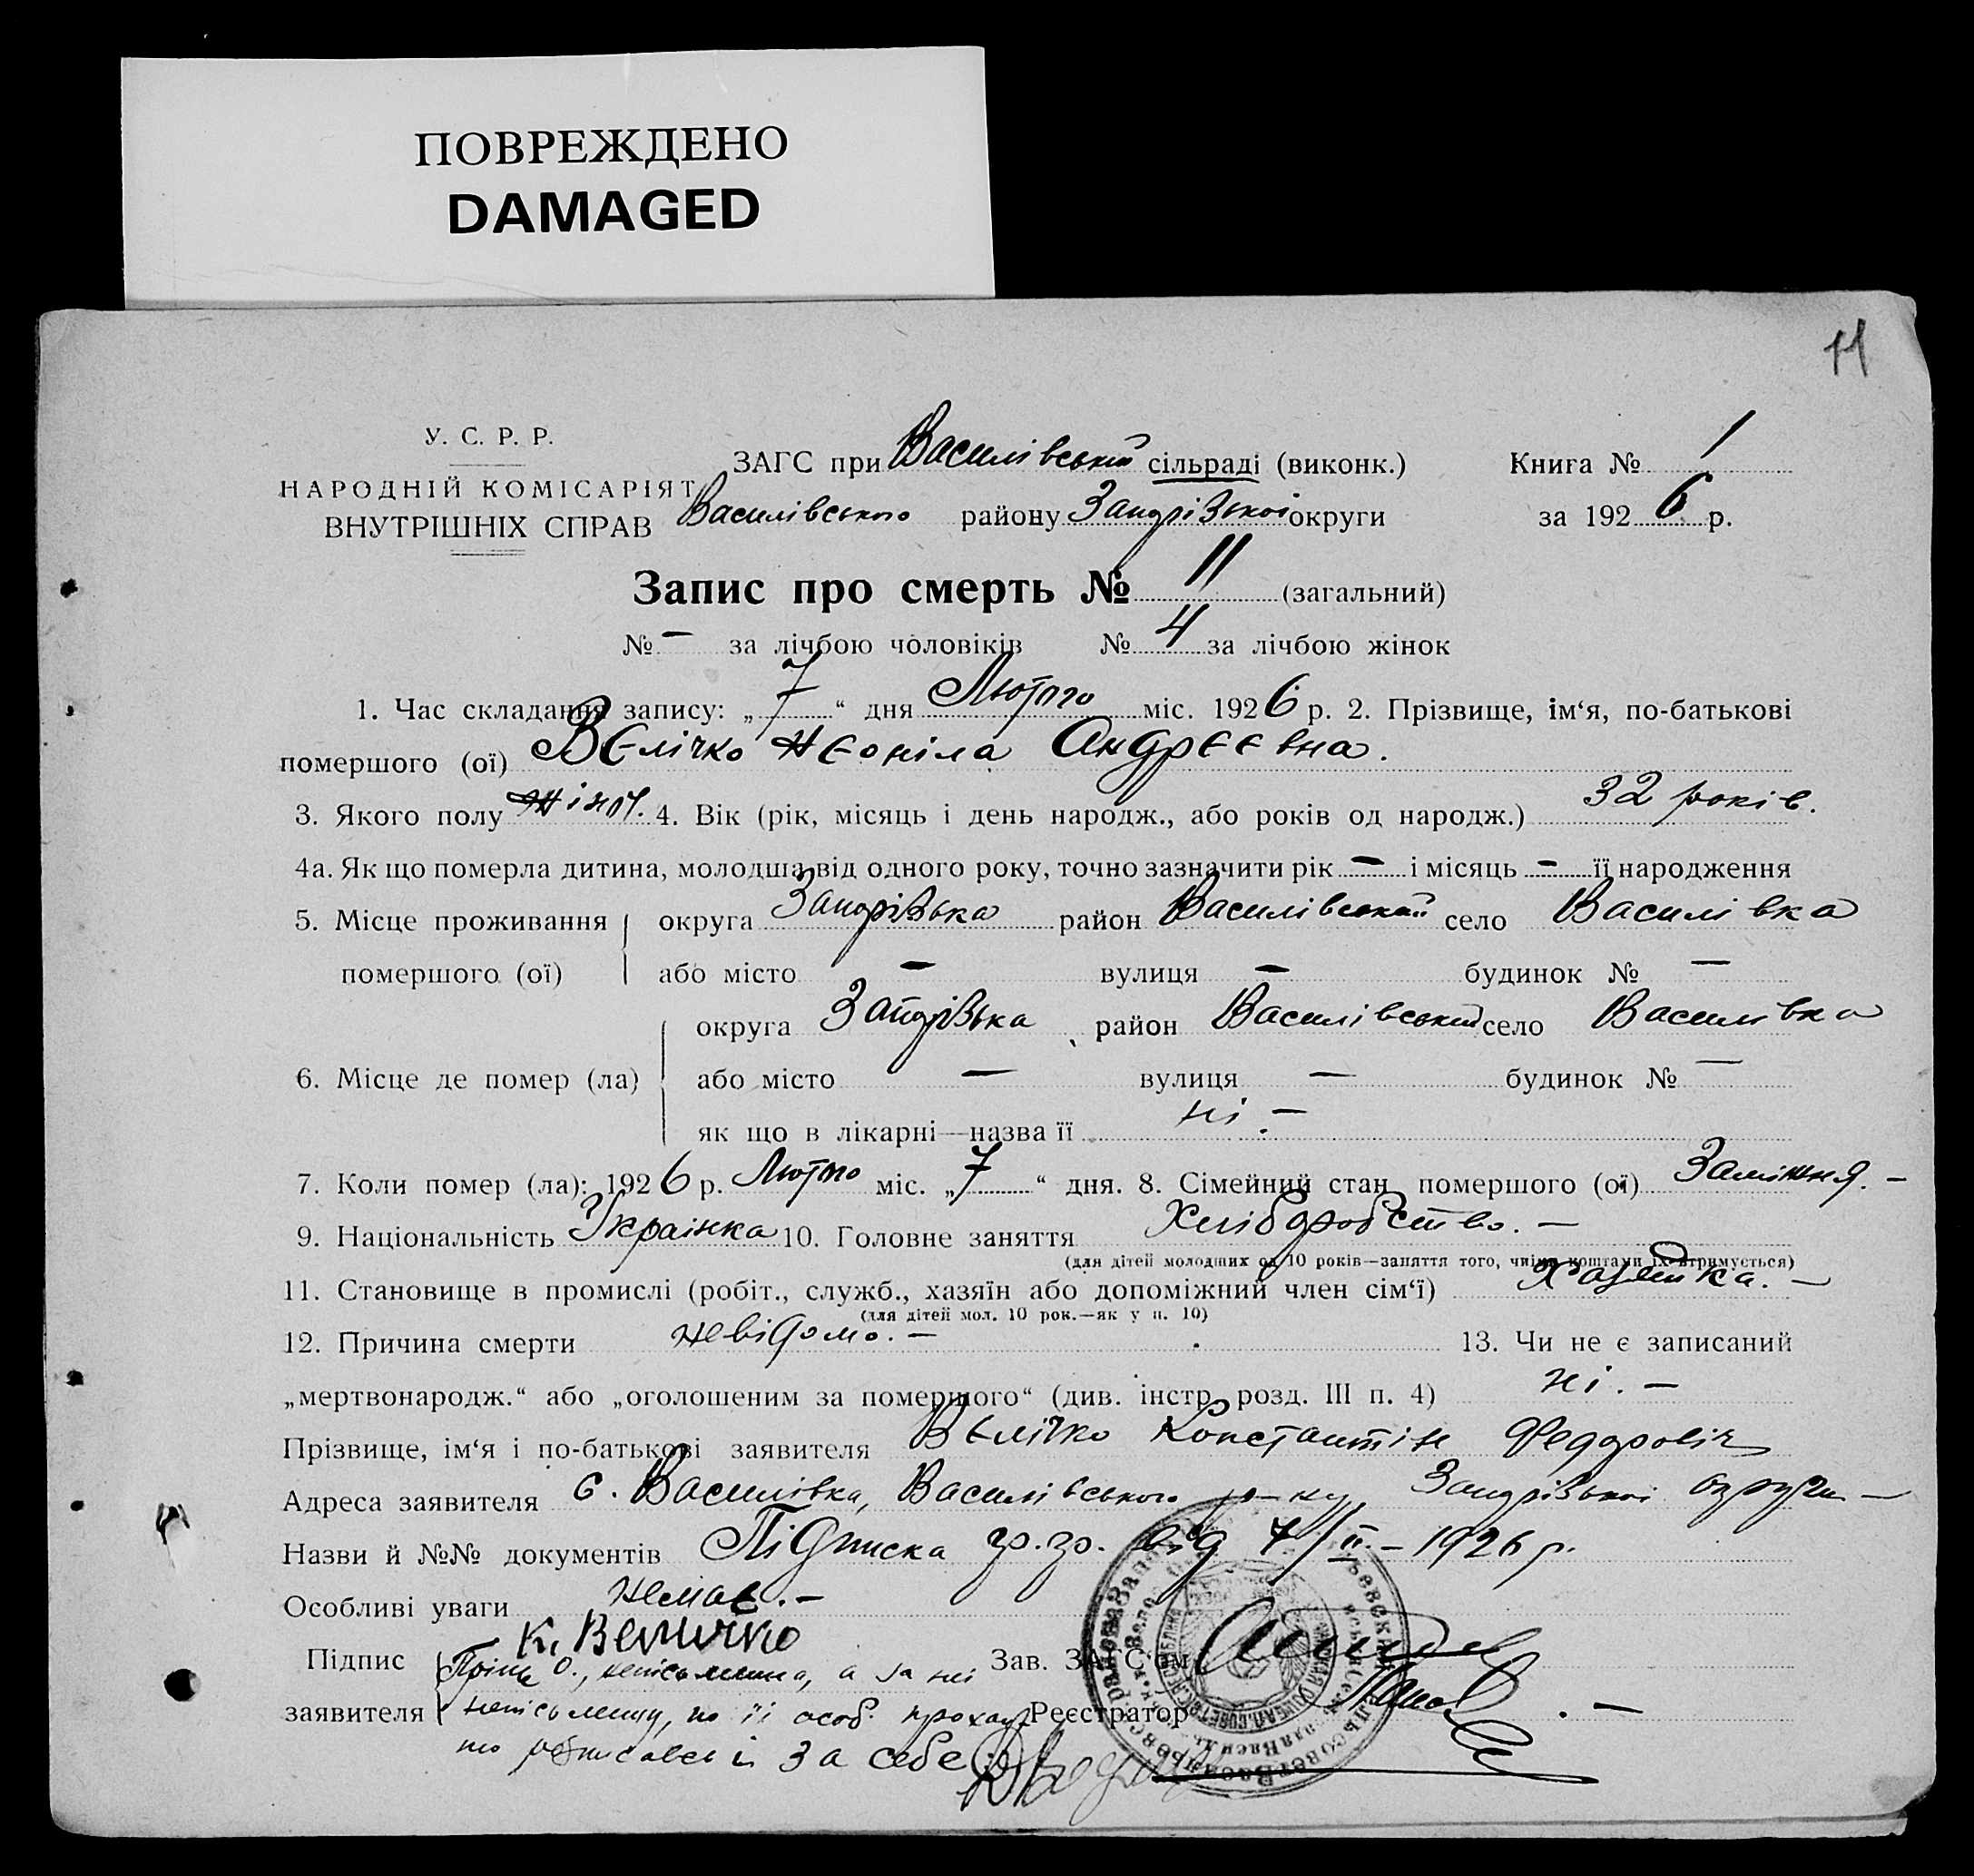 ПОВРЕЖДЕНО
DAMAGED
11
У. С. Р. Р.
НАРОДНІЙ КОМІСАРІЯТ
ВНУТРІШНІХ СПРАВ
ЗАГС при Василівській сільраді (виконк.) Книга № 1
Василівського району Запорізької округи за 1926 р.
Запис про смерть № 11 (загальний)
№ – за лічбою чоловіків № 4 за лічбою жінок
1. Час складання запису: „7“ дня Лютого міс. 1926 р. 2. Прізвище, ім‘я, по-батькові
помершого (ої) Вєлічко Нєоніла Андрєєвна.
3. Якого полу жіноч. 4. Вік (рік, місяць і день народж., або років од народж.) 32 років.
4а. Як що померла дитина, молодша від одного року, точно зазначити рік – і місяць – її народження
5. Місце проживання округа Запорізька район Василівський село Василівка
помершого (ої) або місто – вулиця – будинок № –
округа Запорізька район Василівський село Василівка
6. Місце де помер (ла) або місто – вулиця – будинок № –
як що в лікарні—назва її ні. –
7. Коли помер (ла): 1926 р. Лютого міс. „7“ дня. 8. Сімейний стан помершого (ої) Заміжня. –
9. Національність Українка 10. Головне заняття Хліборобство. –
(для дітей молодших од 10 років—заняття того, чиїми коштами їх утримується)
11. Становище в промислі (робіт., служб., хазяїн або допоміжний член сім‘ї) Хазяйка. –
(для дітей мол. 10 рок.—як у п. 10)
12. Причина смерти невідомо. – 13. Чи не є записаний
„мертвонародж.“ або „оголошеним за помершого“ (див. інстр. розд. III п. 4) ні. –
Прізвище, ім‘я і по-батькові заявителя Вєлічко Константін Федоровіч
Адреса заявителя с. Василівка, Василівського р-ну, Запорізької округи –
Назви й №№ документів Підписка гр. гр. від 7/II – 1926 р.
Особливі уваги немає. –
К. Величко
Підпис О., неписьменна, а за неї Зав. ЗАГС‘ом
заявителя неписьменну, по її особ. Реєстратор
за себе